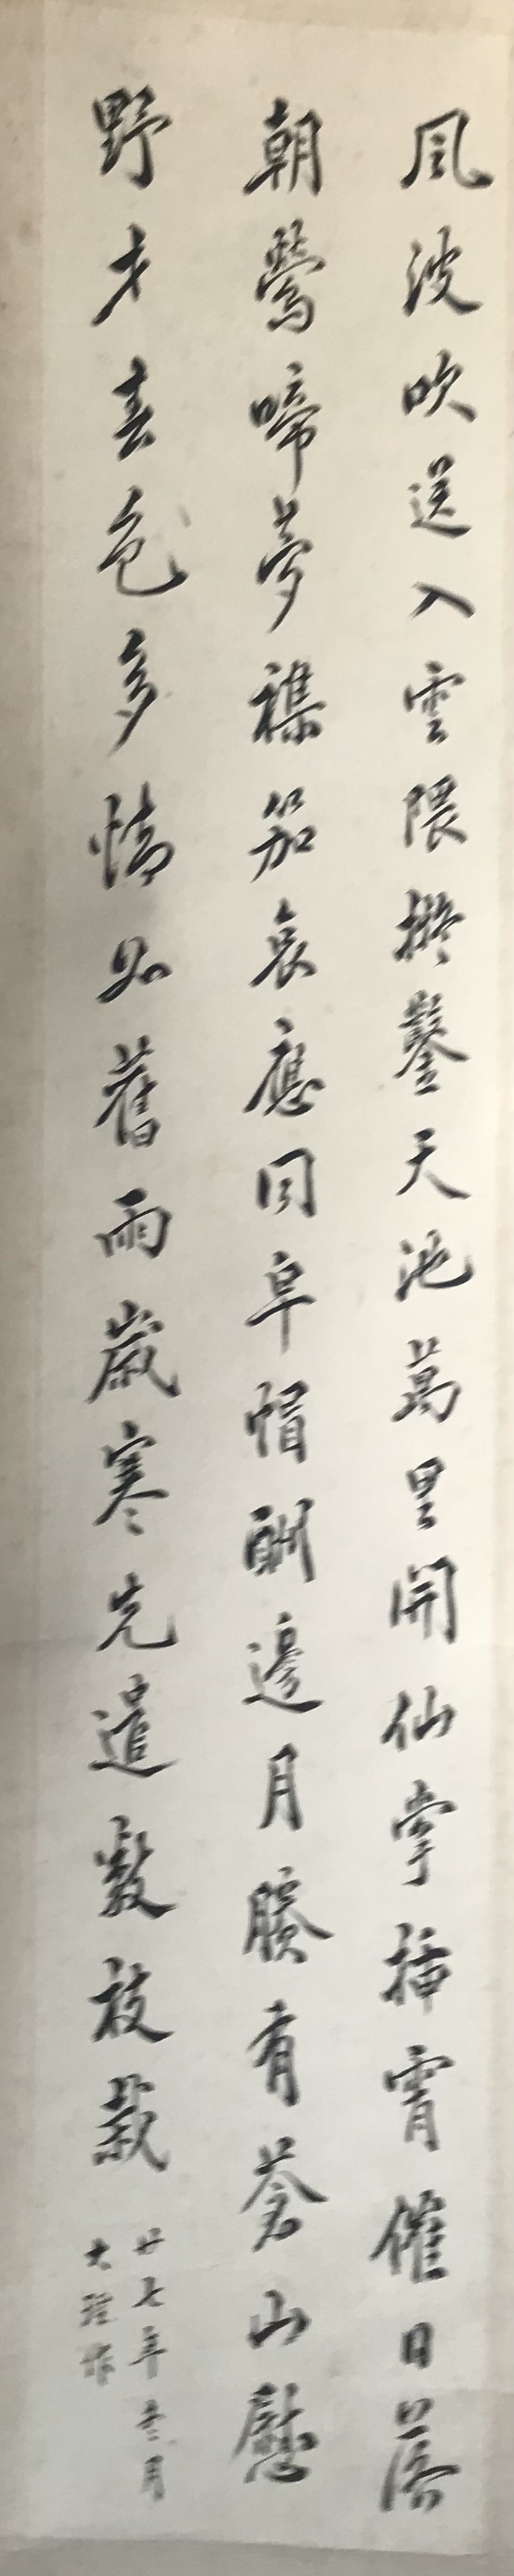 風波吹送入雲隈擬鑿天池萬里開仙掌插霄催日落
朝鶯啼夢襍笳哀應同皁帽酬邊月賸有蒼山慰
野才春色多情如舊雨歲寒先遣數枝栽
廿七年冬月
大理作